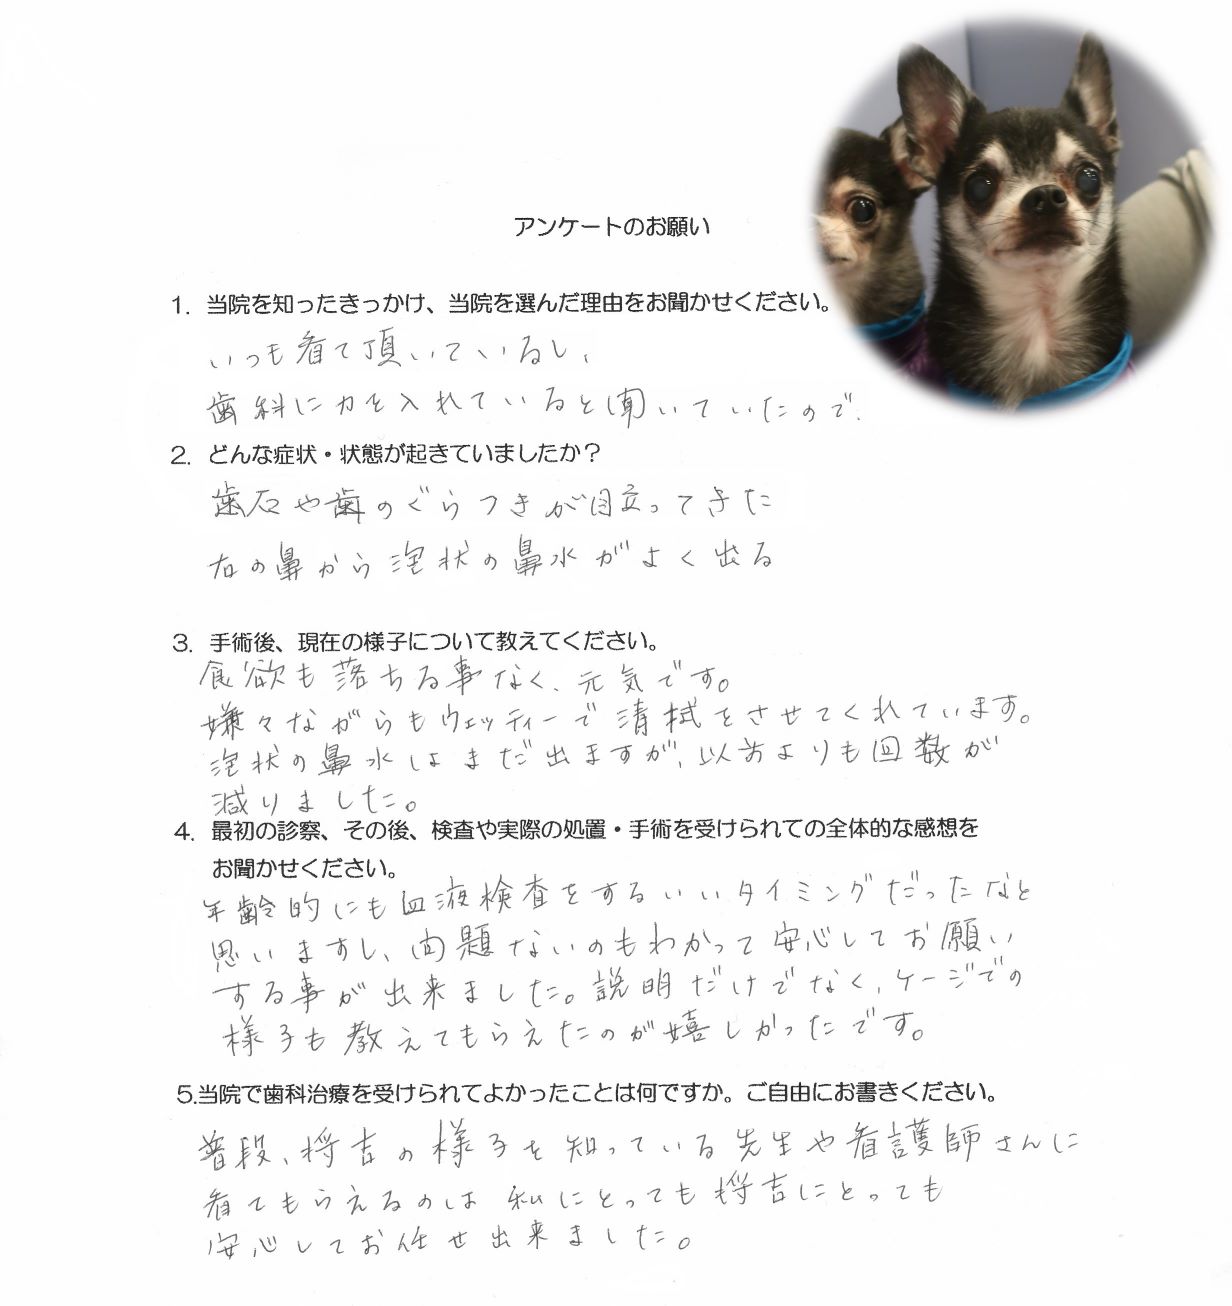 アンケートのお願い
1. 当院を知ったきっかけ、当院を選んだ理由をお聞かせください。
いつも看て頂いているし、
歯科に力を入れていると聞いていたので、
2. どんな症状・状態が起きていましたか？
歯石や歯のぐらつきが目立ってきた
右の鼻から泡状の鼻水がよく出る
3. 手術後、現在の様子について教えてください。
食欲も落ちる事なく、元気です。
嫌々ながらもウェッティーで清拭をさせてくれています。
泡状の鼻水はまだ出ますが、以前よりも回数が
減りました。
4. 最初の診察、その後、検査や実際の処置・手術を受けられての全体的な感想を
お聞かせください。
年齢的にも血液検査をするいいタイミングだったなと
思いますし、問題ないのもわかって安心してお願い
する事が出来ました。説明だけでなく、ケージでの
様子も教えてもらえたのが嬉しかったです。
5.当院で歯科治療を受けられてよかったことは何ですか。ご自由にお書きください。
普段、将吉の様子を知っている先生や看護師さんに
看てもらえるのは私にとっても将吉にとっても
安心してお任せ出来ました。